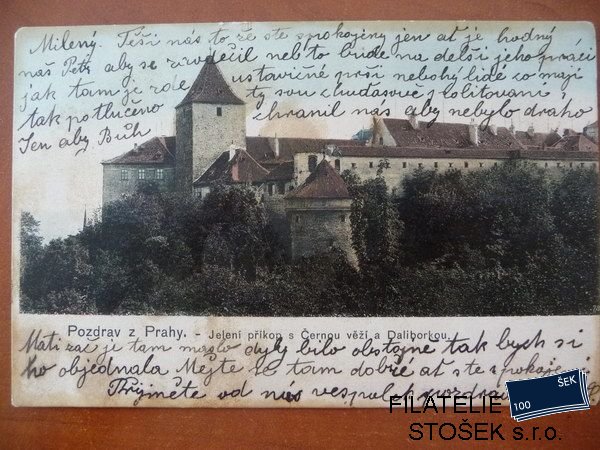 Milený. Těší nás to že ste spokojeny jen ať je hodný
náš Petr aby se zavděčil neb to bude na delší jeho práci
jak tam je zde ustavične prší nebohý lide co mají
tak potlučeno ty sou chudasové k politovaní
Jen aby Bůh chranil nás aby nebylo draho
Pozdrav z Prahy. - Jelení příkop s Černou věží a Daliborkou.
Mati zač je tam maslo dyby bilo obstojne tak bych si
ho objednala Mejte se tam dobře ať ste spokojeni
Přijmete od nás vespolek pozdrav
FILATELIE
STOŠEK s.r.o.
100
ŠEK